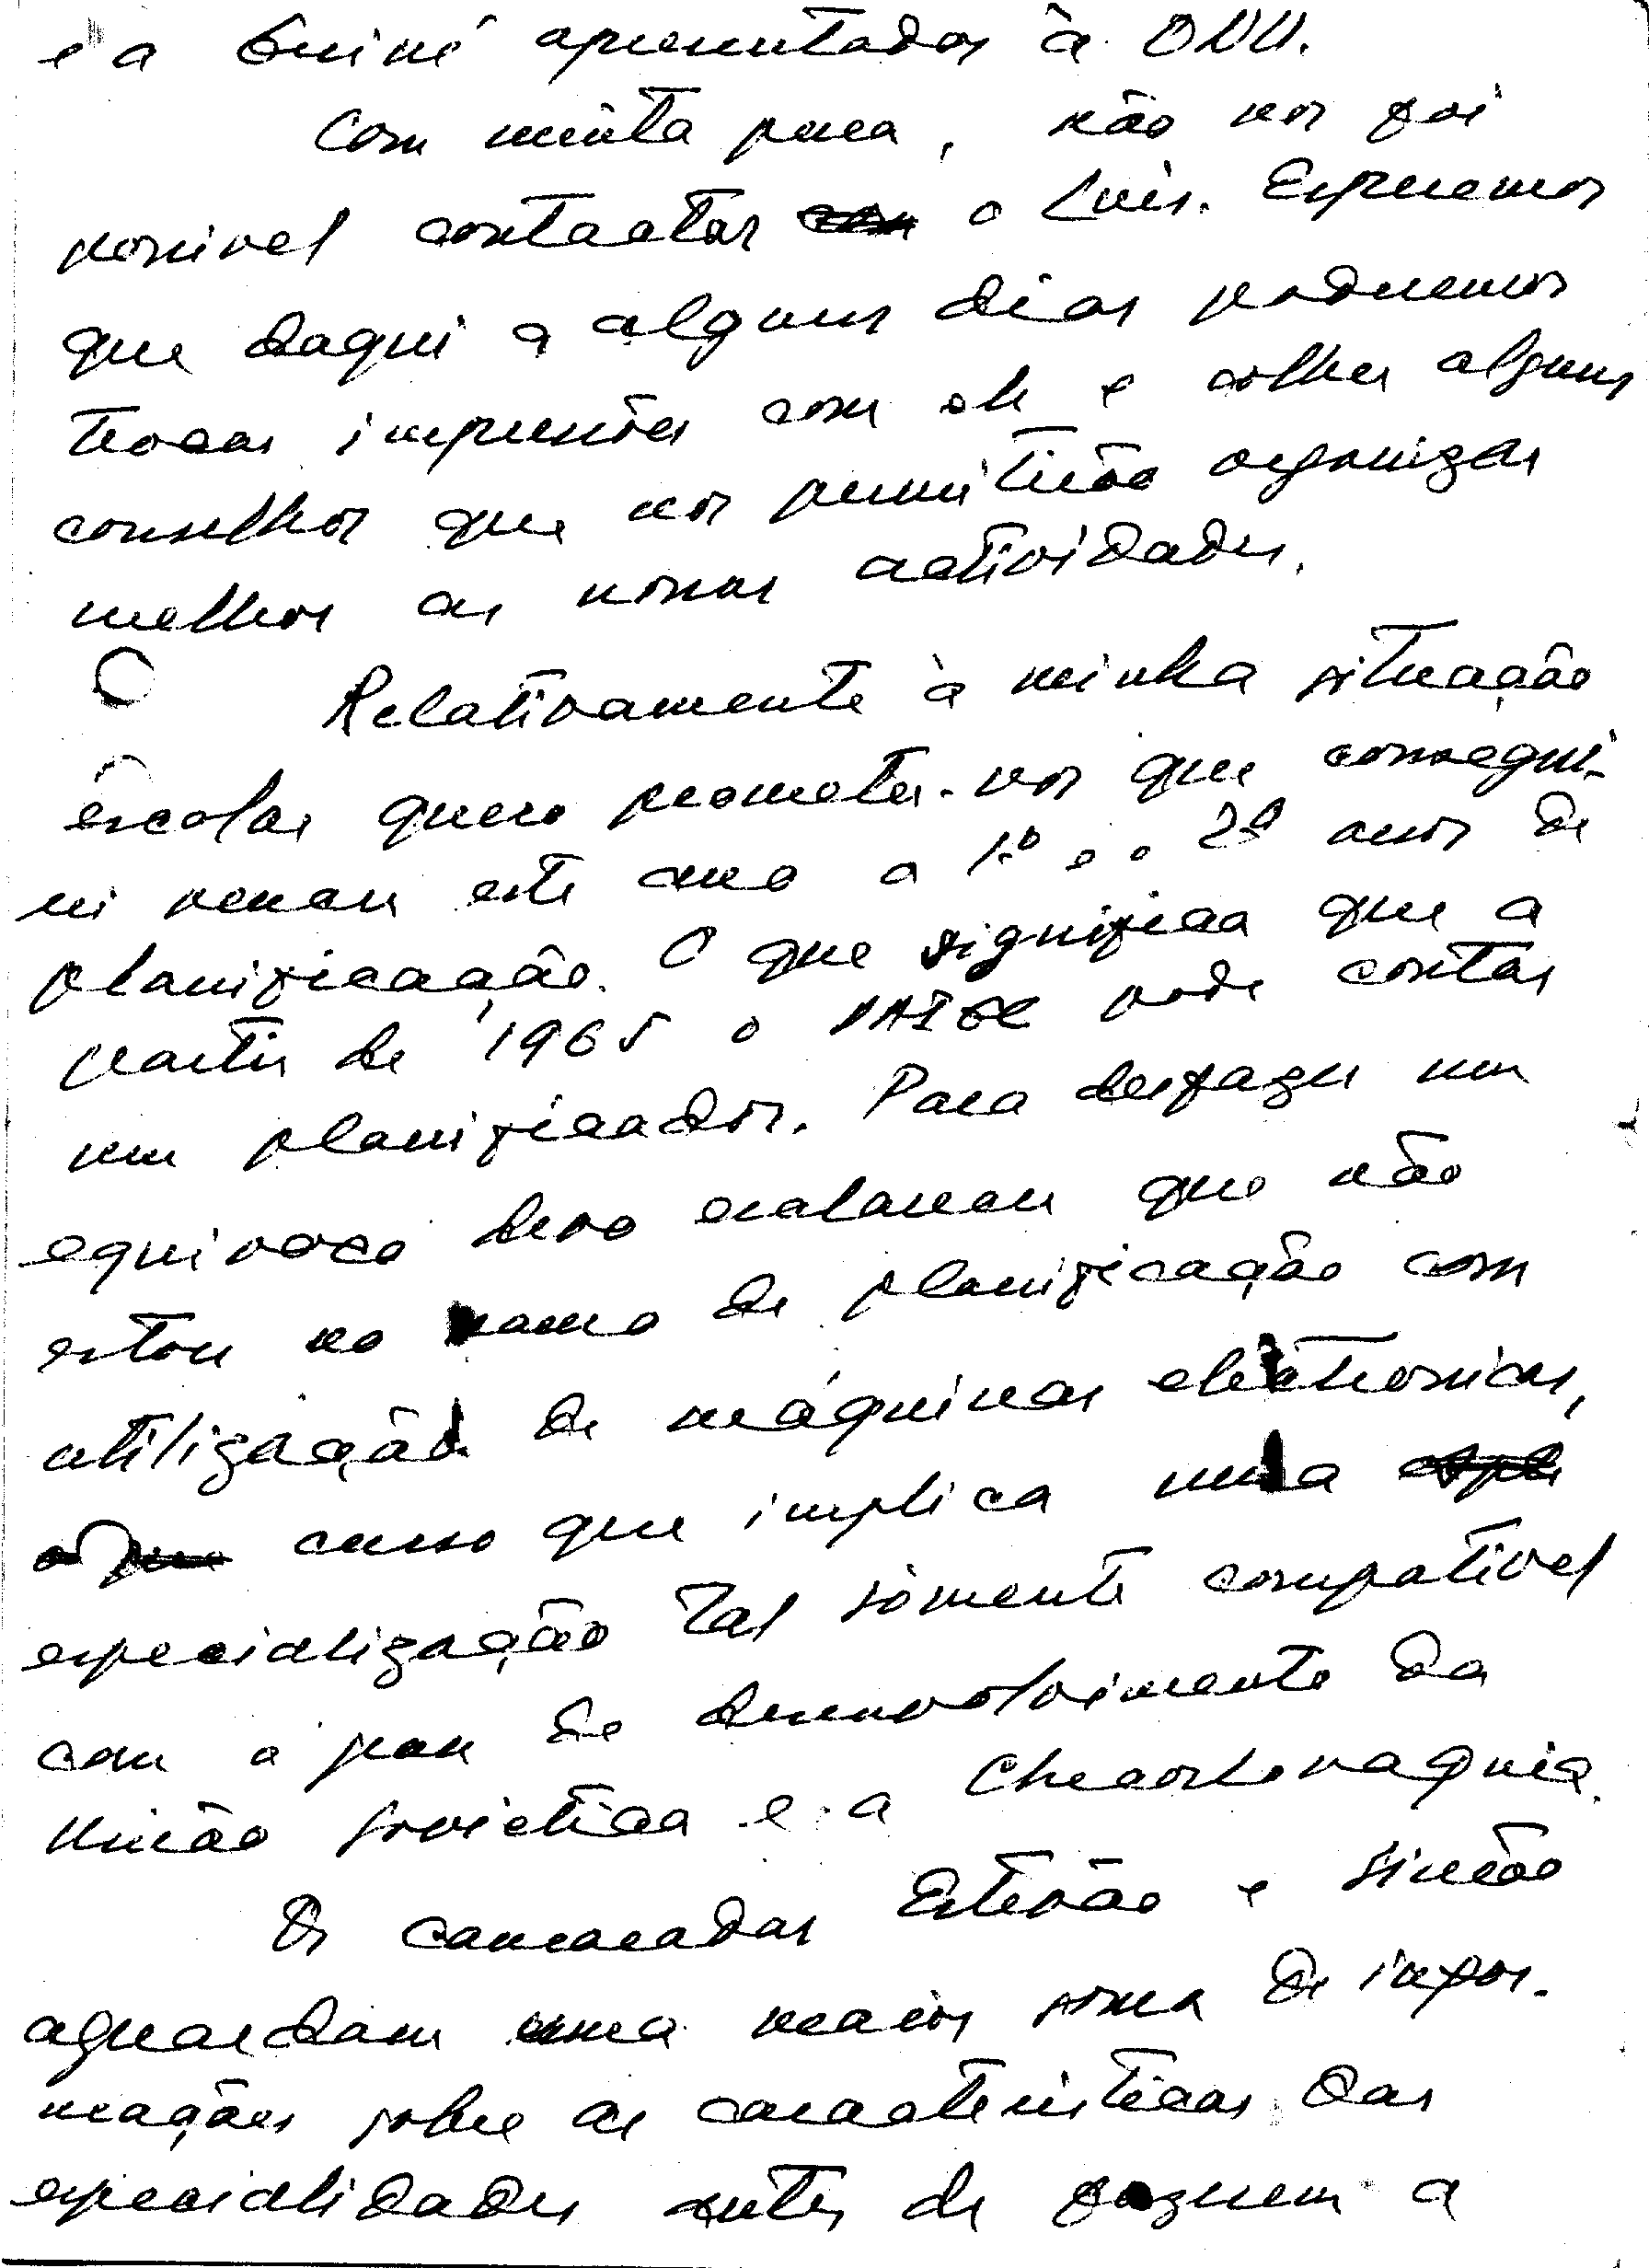 e a Guiné apresentados à ONU.
Com muita pena, não nos foi
possivel contactar com o Luís. Esperemos
que daqui a alguns dias poderemos
trocar impressões com ele e colher alguns
conselhos que nos permitirão organizar
melhor as nossas actividades.
Relativamente à minha situação
escolar quero prometer-vos que consegui-
rei vencer este ano o 1.º e o 2º anos de
planificação. O que significa que a
partir de 1965 o PAIGC pode contar
um planificador. Para desfazer um
equivoco devo esclarecer que não
estou no ramo de planificação com
utilização de máquinas electronicas,
o que curso que implica uma
especialização tal sómente compativel
com o grau de desenvolvimento da
União Sovietica e a Checoslovaquia.
Os camaradas Estevão e Simão
aguardam uma maior soma de infor-
mações sobre as caracteristicas das
especialidades antes de fazerem a